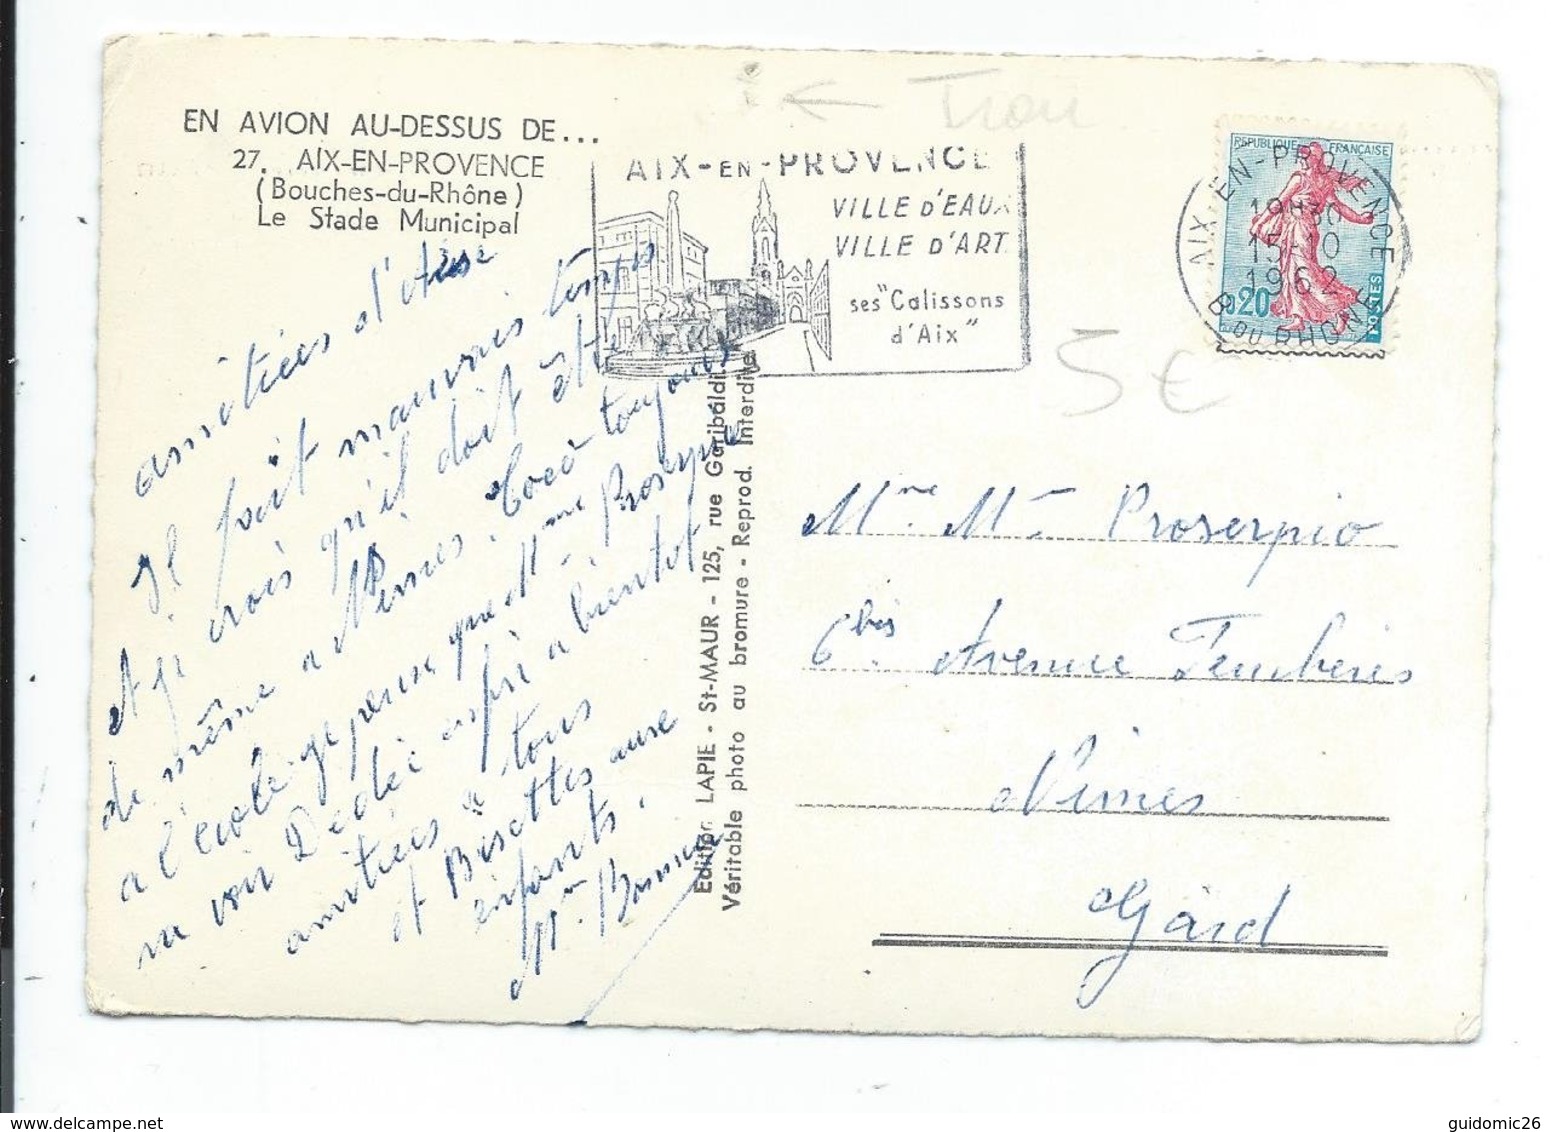 ← Trou
EN AVION AU-DESSUS DE...
27. AIX-EN-PROVENCE
(Bouches-du-Rhône)
Le Stade Municipal
AIX-EN-PROVENCE
VILLE D'EAUX
VILLE D'ART
ses "Calissons
d'Aix"
REPUBLIQUE FRANÇAISE
0,20
POSTES
AIX-EN-PROVENCE
19H30
15-10
1962
B. DU RHONE
5€
amitiées d'Aix
Il fait mauvais temps
et je crois qu'il doit être
de même a Nimes. Coco toujours
a l'école. je pense que Mme Proserpio
va voir Dédée après a bientot
amitiées a tous
et Bisettes aux
enfants.
Mme
Edition LAPIE - St-MAUR - 125, rue Garibaldi
Véritable photo au bromure - Reprod. Interdite
Mme Mr Proserpio
6 bis Avenue Feuchères
Nimes
Gard
guidomic26